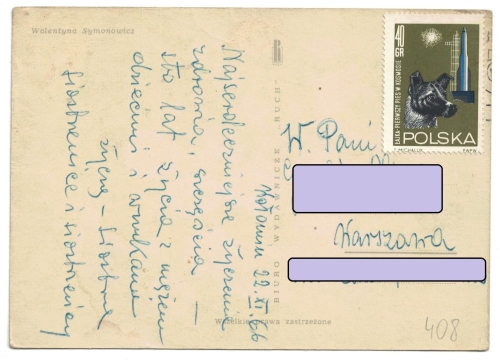 Walentyna Symonowicz
Najserdeczniejsze życzenia
zdrowia, szczęścia –
sto lat życia z mężem
dziećmi i wnukami
życzą – siostra
siostrzenice i siostrzeńcy
22.XI.66
BIURO WYDAWNICZE "RUCH"
Wszelkie prawa zastrzeżone
40
GR
ŁAJKA-PIERWSZY PIES W KOSMOSIE
POLSKA
F. MICHALUK PWPW
W. Pani
Warszawa
408